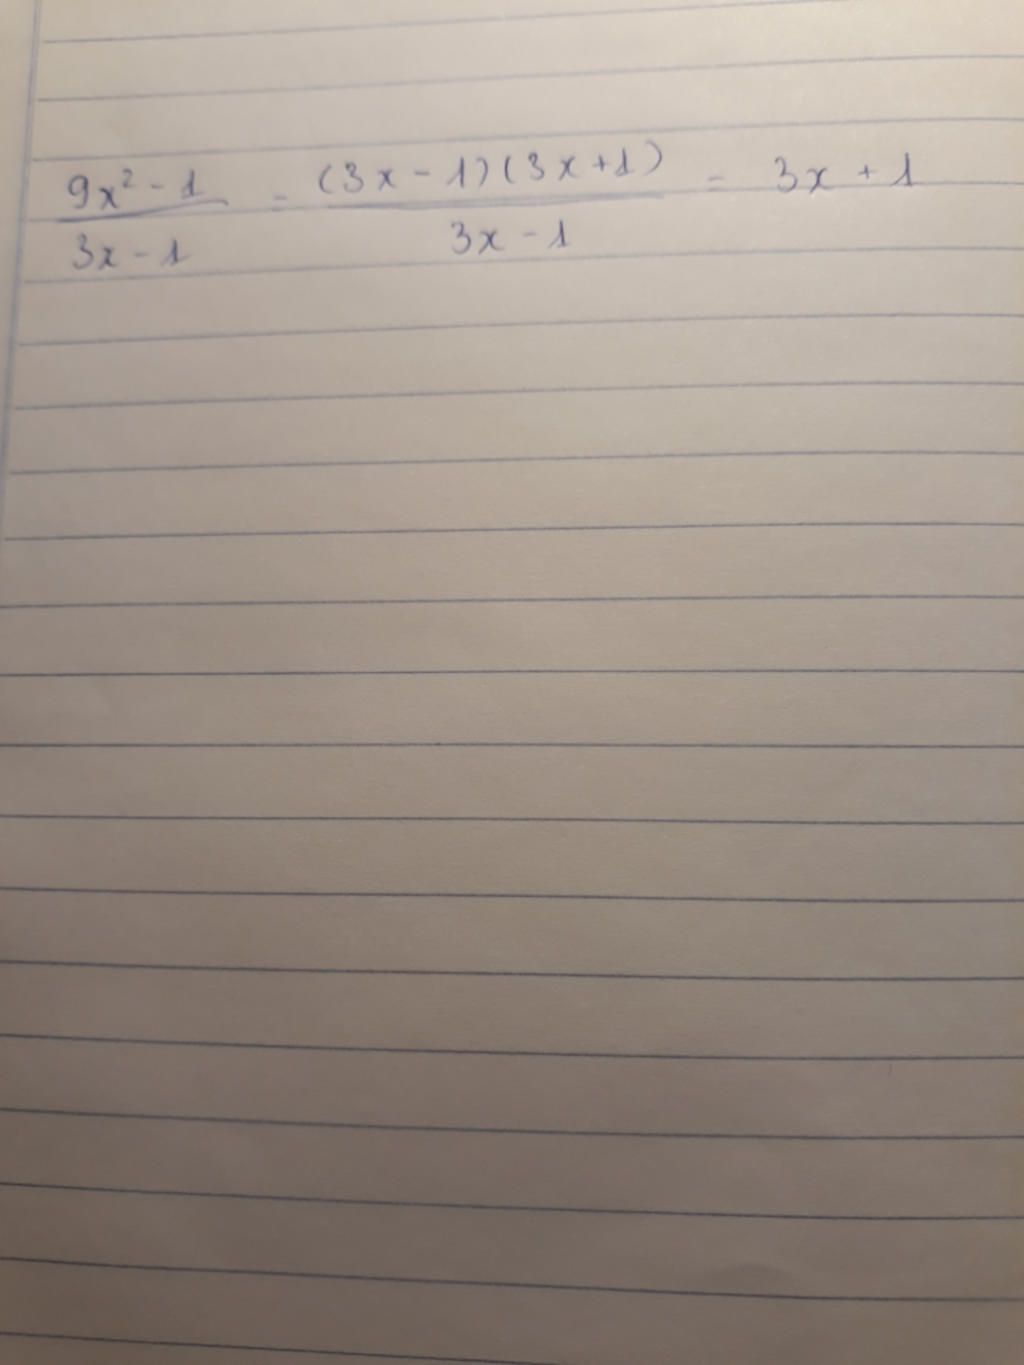 9x² - 1 / 3x - 1 = (3x - 1)(3x + 1) / 3x - 1 = 3x + 1